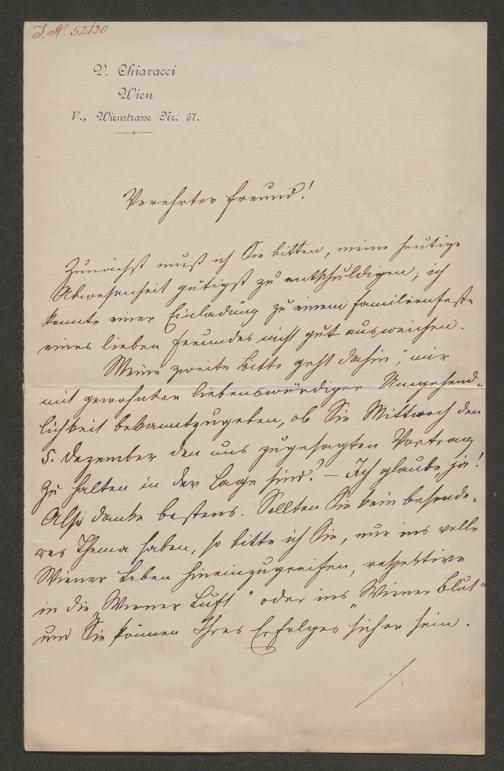 I. N. 52130
V. Chiavacci
Wien
V., Wienstrasse Nr. 67.
Verehrter Freund!
Zunächst muß ich Sie bitten, meine heutige
Abwesenheit gütigst zu entschuldigen; ich
konnte einer Einladung zu einem Familienfeste
eines lieben Freundes nicht gut ausweichen.
Meine zweite Bitte geht dahin, mir
mit gewohnter liebenswürdiger Umgehend-
lichkeit bekanntzugeben, ob Sie Mittwoch den
5. Dezember den uns zugesagten Vortrag
zu halten in der Lage sind? – Ich glaube ja!
Also danke bestens. Sollten Sie kein besonde-
res Thema haben, so bitte ich Sie, nur ins volle
Wiener Leben hineinzugreifen, respektive
in die „Wiener Luft" oder ins „Wiener Blut"
und Sie können Ihres Erfolges sicher sein.
./.